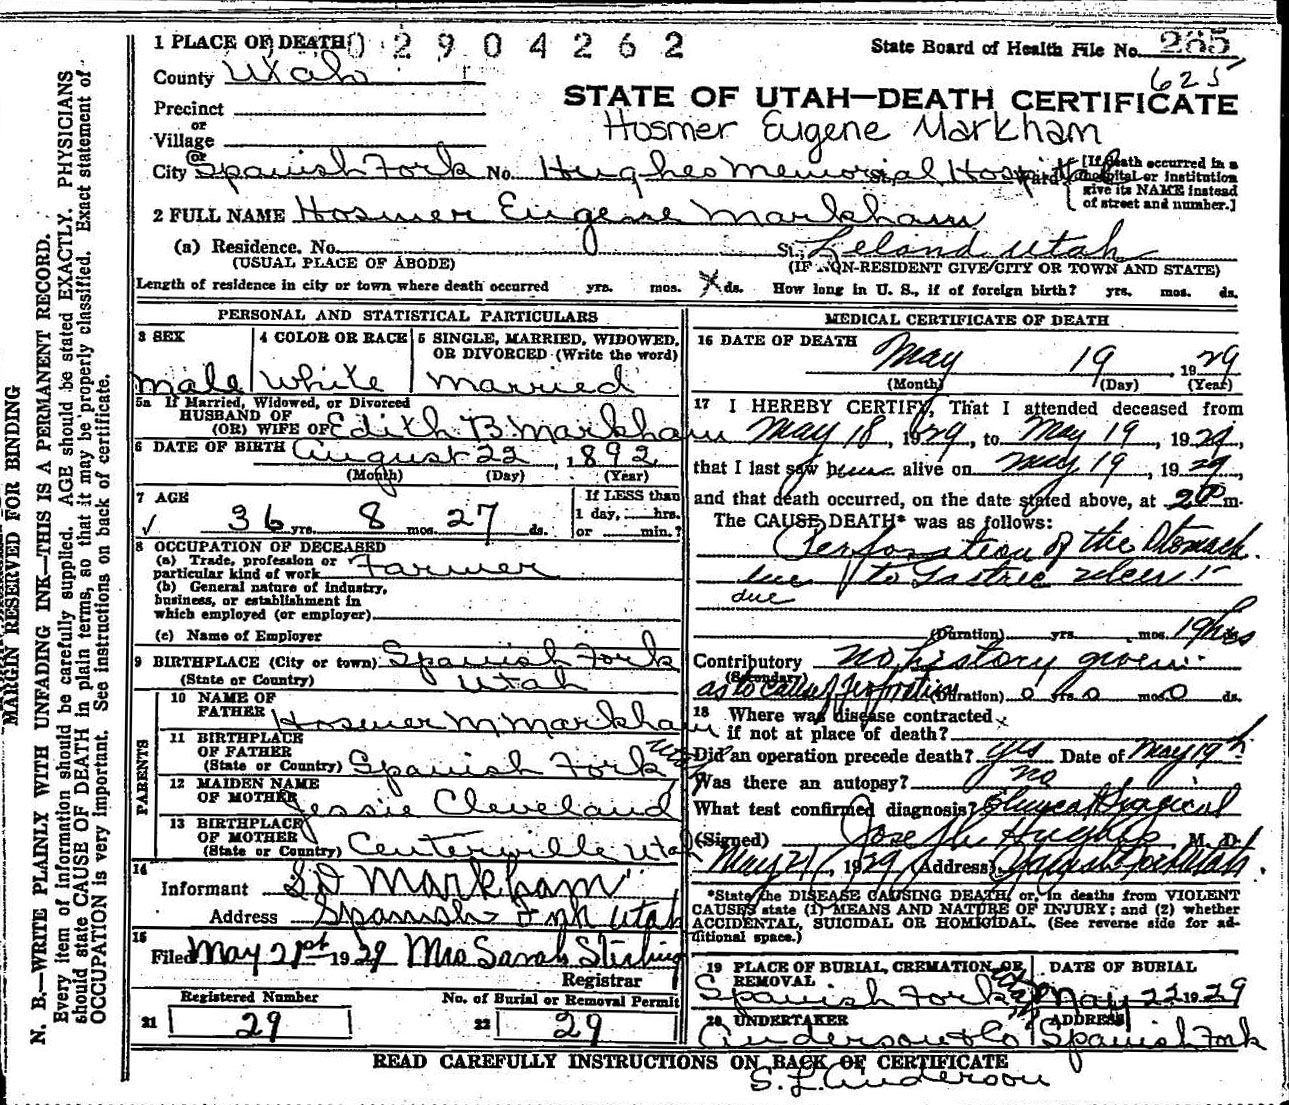 1 PLACE OF DEATH 0 2 9 0 4 2 6 2
State Board of Health File No. 285
County Utah
625
STATE OF UTAH—DEATH CERTIFICATE
Precinct
or
Village
Hosmer Eugene Markham
or
City Spanish Fork No. Hughes Memorial Hospital St., Ward
[If death occurred in a hospital or institution give its NAME instead of street and number.]
2 FULL NAME Hosmer Eugene Markham
(a) Residence. No. St., Leland Utah
(USUAL PLACE OF ABODE) (IF NON-RESIDENT GIVE CITY OR TOWN AND STATE)
Length of residence in city or town where death occurred yrs. mos. ds. How long in U. S., if of foreign birth? yrs. mos. ds.
PERSONAL AND STATISTICAL PARTICULARS
3 SEX
male
4 COLOR OR RACE
White
5 SINGLE, MARRIED, WIDOWED, OR DIVORCED (Write the word)
Married
5a If Married, Widowed, or Divorced
HUSBAND OF
(OR) WIFE OF Edith B. Markham
6 DATE OF BIRTH August 22, 1892
(Month) (Day) (Year)
7 AGE
✓ 36 yrs. 8 mos. 27 ds.
If LESS than
1 day, hrs.
or min.?
8 OCCUPATION OF DECEASED
(a) Trade, profession or
particular kind of work Farmer
(b) General nature of industry,
business, or establishment in
which employed (or employer)
(c) Name of Employer
9 BIRTHPLACE (City or town) Spanish Fork
(State or Country) Utah
PARENTS
10 NAME OF
FATHER Hosmer M Markham
11 BIRTHPLACE
OF FATHER
(State or Country) Spanish Fork Utah
12 MAIDEN NAME
OF MOTHER Jessie Cleveland
13 BIRTHPLACE
OF MOTHER
(State or Country) Centerville Utah
14
Informant S. D. Markham
Address Spanish Fork Utah
15
Filed May 21st 1929 Mrs Sarah Stirling
Registrar
Registered Number
21 29
No. of Burial or Removal Permit
22 29
MEDICAL CERTIFICATE OF DEATH
16 DATE OF DEATH
May 19, 1929
(Month) (Day) (Year)
17 I HEREBY CERTIFY, That I attended deceased from
May 18, 1929, to May 19, 1929,
that I last saw him alive on May 19, 1929,
and that death occurred, on the date stated above, at m.
The CAUSE DEATH* was as follows:
Perforation of the Stomach
due to Gastric ulcer
due
(Duration) yrs. mos. 19 hrs
Contributory No history given
(Secondary)
as to cause of perforation (Duration) 0 yrs. 0 mos. 0 ds.
18 Where was disease contracted
if not at place of death?
Did an operation precede death? yes Date of May 19th
Was there an autopsy? no
What test confirmed diagnosis? Surgical
(Signed) Hughes M. D.
May 21, 1929 (Address) Spanish Fork Utah
*State the DISEASE CAUSING DEATH, or, in deaths from VIOLENT
CAUSES state (1) MEANS AND NATURE OF INJURY; and (2) whether
ACCIDENTAL, SUICIDAL OR HOMICIDAL. (See reverse side for additional space.)
19 PLACE OF BURIAL, CREMATION, OR
REMOVAL
Spanish Fork Utah
DATE OF BURIAL
May 22 1929
20 UNDERTAKER
Anderson & Co
ADDRESS
Spanish Fork
READ CAREFULLY INSTRUCTIONS ON BACK OF CERTIFICATE
S. L. Anderson
MARGIN RESERVED FOR BINDING
N. B.—WRITE PLAINLY WITH UNFADING INK—THIS IS A PERMANENT RECORD.
Every item of information should be carefully supplied. AGE should be stated EXACTLY. PHYSICIANS
should state CAUSE OF DEATH in plain terms, so that it may be properly classified. Exact statement of
OCCUPATION is very important. See instructions on back of certificate.